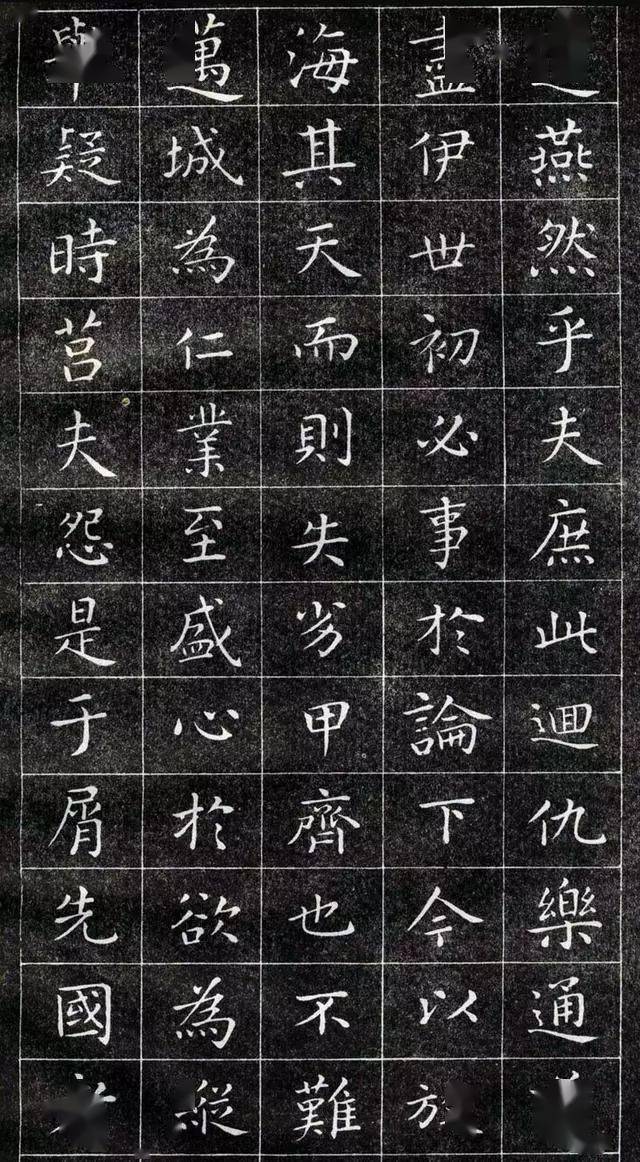 燕然乎夫庶此迴仇樂通
盡伊世初必事於論下今以
海其天而則失劣甲齊也不難
邁城為仁業至盛心於欲為縱
疑時莒夫怨是于屑先國